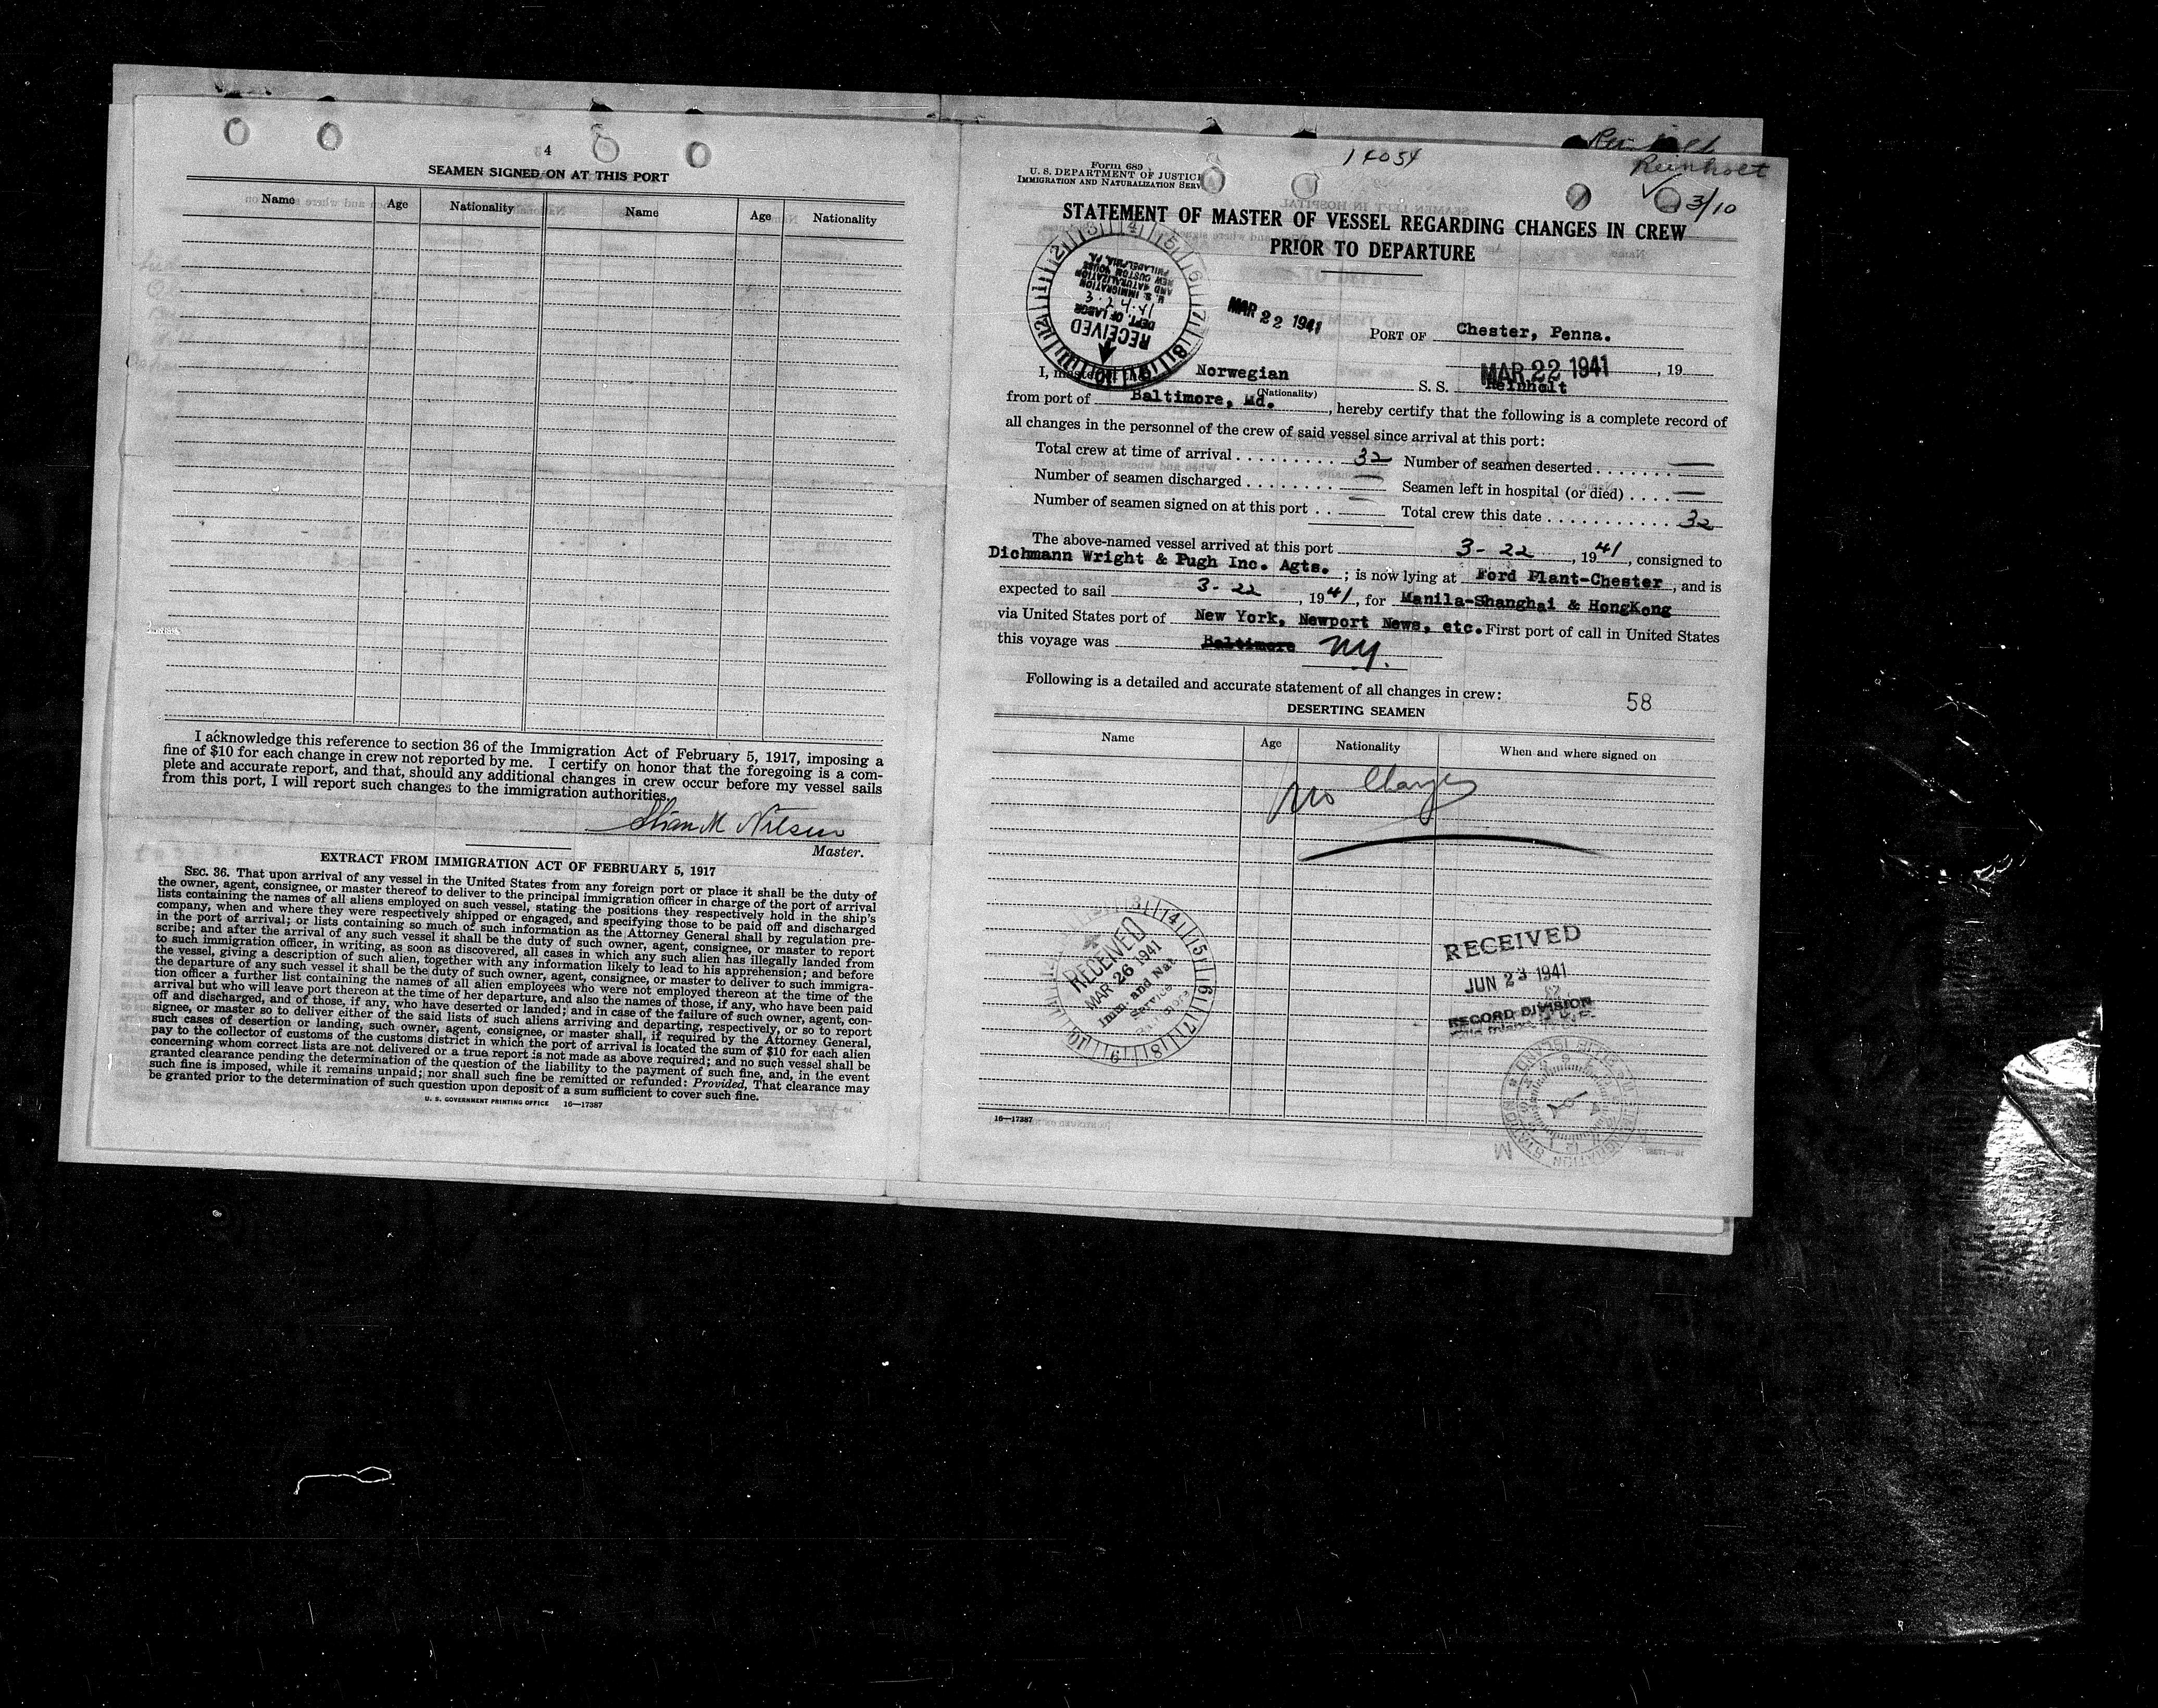 4
SEAMEN SIGNED ON AT THIS PORT
Name Age Nationality Name Age Nationality
I acknowledge this reference to section 36 of the Immigration Act of February 5, 1917, imposing a
fine of $10 for each change in crew not reported by me. I certify on honor that the foregoing is a com-
plete and accurate report, and that, should any additional changes in crew occur before my vessel sails
from this port, I will report such changes to the immigration authorities.
Nilsen
Master.
EXTRACT FROM IMMIGRATION ACT OF FEBRUARY 5, 1917
SEC. 36. That upon arrival of any vessel in the United States from any foreign port or place it shall be the duty of
the owner, agent, consignee, or master thereof to deliver to the principal immigration officer in charge of the port of arrival
lists containing the names of all aliens employed on such vessel, stating the positions they respectively hold in the ship's
company, when and where they were respectively shipped or engaged, and specifying those to be paid off and discharged
in the port of arrival; or lists containing so much of such information as the Attorney General shall by regulation pre-
scribe; and after the arrival of any such vessel it shall be the duty of such owner, agent, consignee, or master to report
to such immigration officer, in writing, as soon as discovered, all cases in which any such alien has illegally landed from
the vessel, giving a description of such alien, together with any information likely to lead to his apprehension; and before
the departure of any such vessel it shall be the duty of such owner, agent, consignee, or master to deliver to such immigra-
tion officer a further list containing the names of all alien employees who were not employed thereon at the time of the
arrival but who will leave port thereon at the time of her departure, and also the names of those, if any, who have been paid
off and discharged, and of those, if any, who have deserted or landed; and in case of the failure of such owner, agent, con-
signee, or master so to deliver either of the said lists of such aliens arriving and departing, respectively, or so to report
such cases of desertion or landing, such owner, agent, consignee, or master shall, if required by the Attorney General,
pay to the collector of customs of the customs district in which the port of arrival is located the sum of $10 for each alien
concerning whom correct lists are not delivered or a true report is not made as above required; and no such vessel shall be
granted clearance pending the determination of the question of the liability to the payment of such fine, and, in the event
such fine is imposed, while it remains unpaid; nor shall such fine be remitted or refunded: Provided, That clearance may
be granted prior to the determination of such question upon deposit of a sum sufficient to cover such fine.
U. S. GOVERNMENT PRINTING OFFICE 16—17387
14054
Reinholt
3/10
Form 689
U. S. DEPARTMENT OF JUSTICE
IMMIGRATION AND NATURALIZATION SERV
STATEMENT OF MASTER OF VESSEL REGARDING CHANGES IN CREW
PRIOR TO DEPARTURE
RECEIVED
DEPT. OF LABOR
3.24.41
U. S. IMMIGRATION
AND NATURALIZATION
NEW CUSTOM HOUSE
PHILADELPHIA, PA.
MAR 22 1941
PORT OF Chester, Penna.
MAR 22 1941, 19
I, master of the Norwegian S. S. Reinholt
(Nationality)
from port of Baltimore, Md., hereby certify that the following is a complete record of
all changes in the personnel of the crew of said vessel since arrival at this port:
Total crew at time of arrival . . . . . . . . . . 32 Number of seamen deserted . . . . . . . —
Number of seamen discharged . . . . . . . . — Seamen left in hospital (or died) . . . . —
Number of seamen signed on at this port . . — Total crew this date . . . . . . . . . . . . 32
The above-named vessel arrived at this port 3-22, 1941, consigned to
Dichmann Wright & Pugh Inc. Agts. ; is now lying at Ford Plant-Chester, and is
expected to sail 3-22, 1941, for Manila-Shanghai & HongKong
via United States port of New York, Newport News, etc. First port of call in United States
this voyage was Baltimore NY.
Following is a detailed and accurate statement of all changes in crew:
58
DESERTING SEAMEN
Name Age Nationality When and where signed on
No Changes
RECEIVED
MAR 26 1941
Imm. and Nat.
Service
RECEIVED
JUN 23 1941
RECORD DIVISION
16—17387